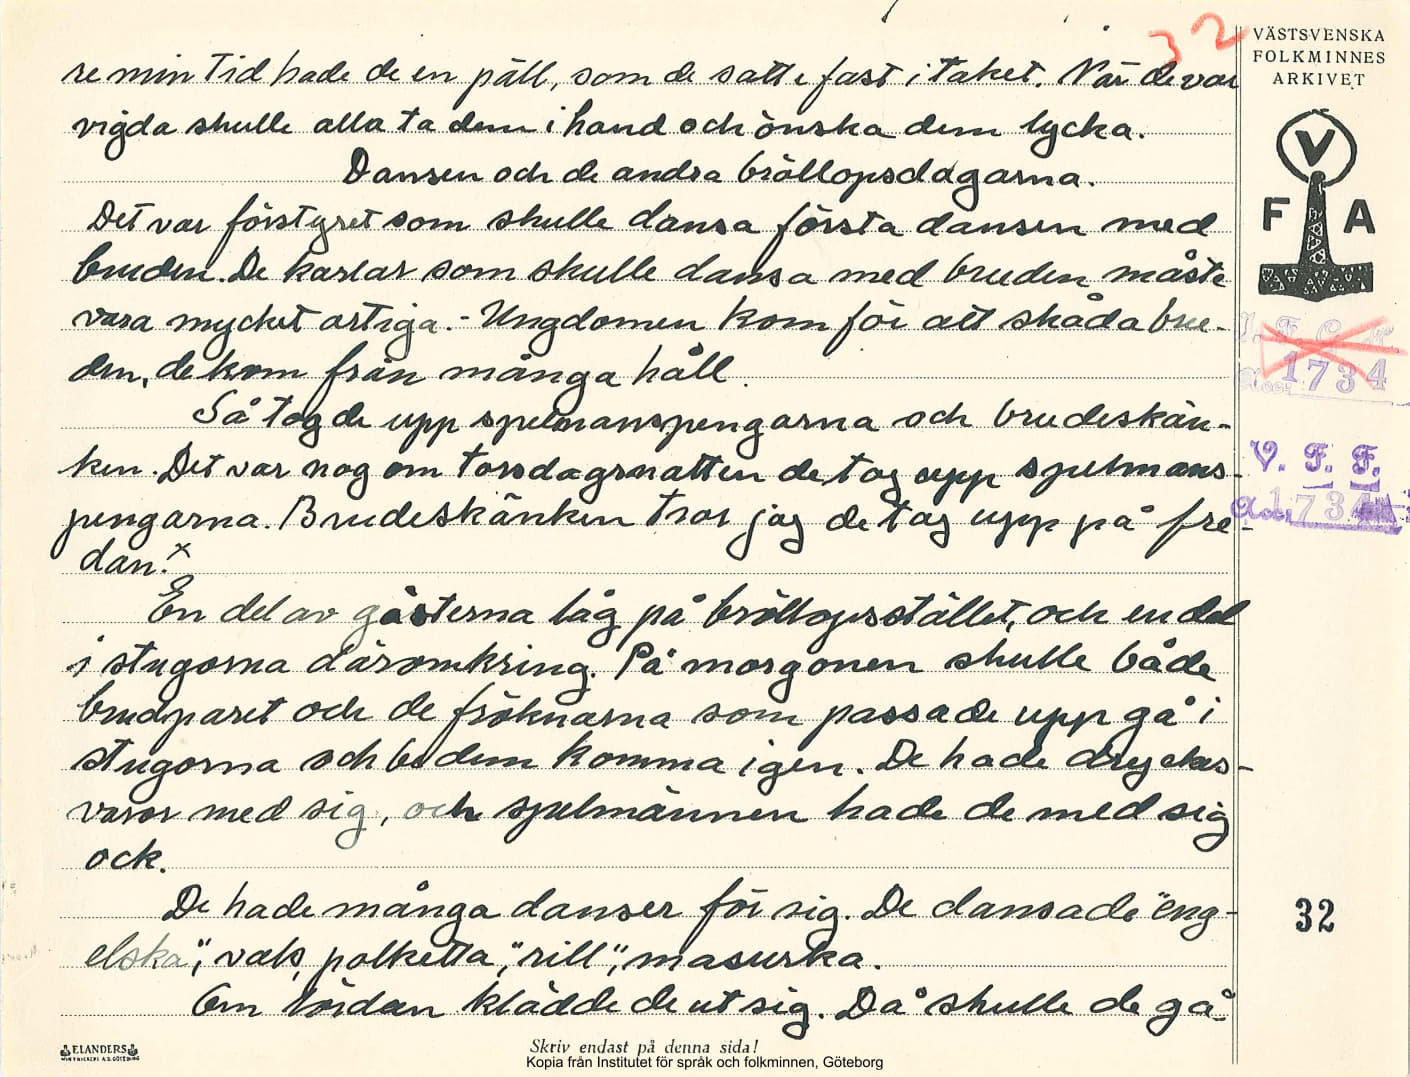 32
VÄSTSVENSKA
FOLKMINNES
ARKIVET
V
F A
re min Tid hade de en päll, som de satte fast i taket. När de var
vigda skulle alla ta dem i hand och önska dem lycka.
Dansen och de andra bröllopsdagarna.
Det var förstyret som skulle dansa första dansen med
bruden. De karlar som skulle dansa med bruden måste
vara mycket artiga. - Ungdomen kom för att skåda bru-
den, de kom från många håll.
Så tog de upp spelmanspengarna och brudeskän-
ken. Det var nog om torsdagsnatten de tog upp spelmans-
pengarna. Brudeskänken tror jag de tog upp på fre-
dan.x
En del av gästerna låg på bröllopsstället, och en del
i stugorna däromkring. På morgonen skulle både
brudparet och de fröknarna som passade upp gå i
stugorna och be dem komma igen. De hade dryckes-
varor med sig, och spelmännen hade de med sig
ock.
De hade många danser för sig. De dansade "eng-
elska", vals, polketta, "rill", masurka.
Om lördan klädde de ut sig. Då skulle de gå
1734
V. F. F.
Acc. 1734
32
ELANDERS
Skriv endast på denna sida!
Kopia från Institutet för språk och folkminnen, Göteborg